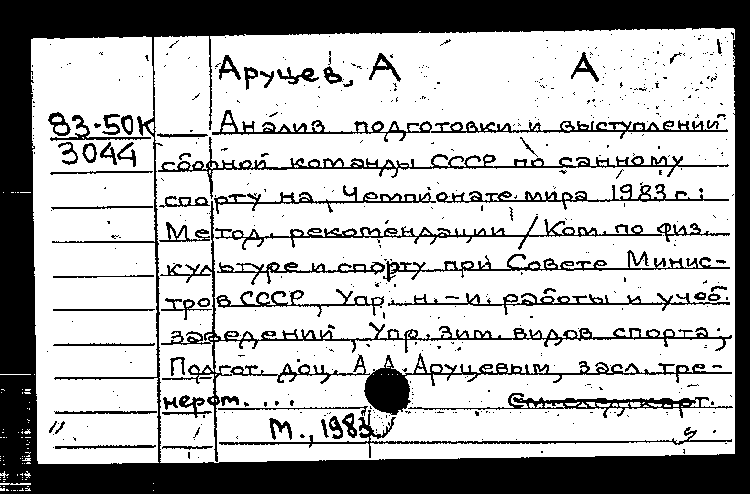 Аруцев, А А
83-50К
3044
Анализ подготовки и выступлений
сборной команды СССР по санному
спорту на Чемпионате мира 1983 г.:
Метод. рекомендации / Ком. по физ.
культуре и спорту при Совете Минис-
тров СССР, Упр. н.-и. работы и учеб.
заведений, Упр. зим. видов спорта;
Подгот. доц. А.А. Аруцевым, засл. тре-
нером. ... См. след. карт.
М., 1983